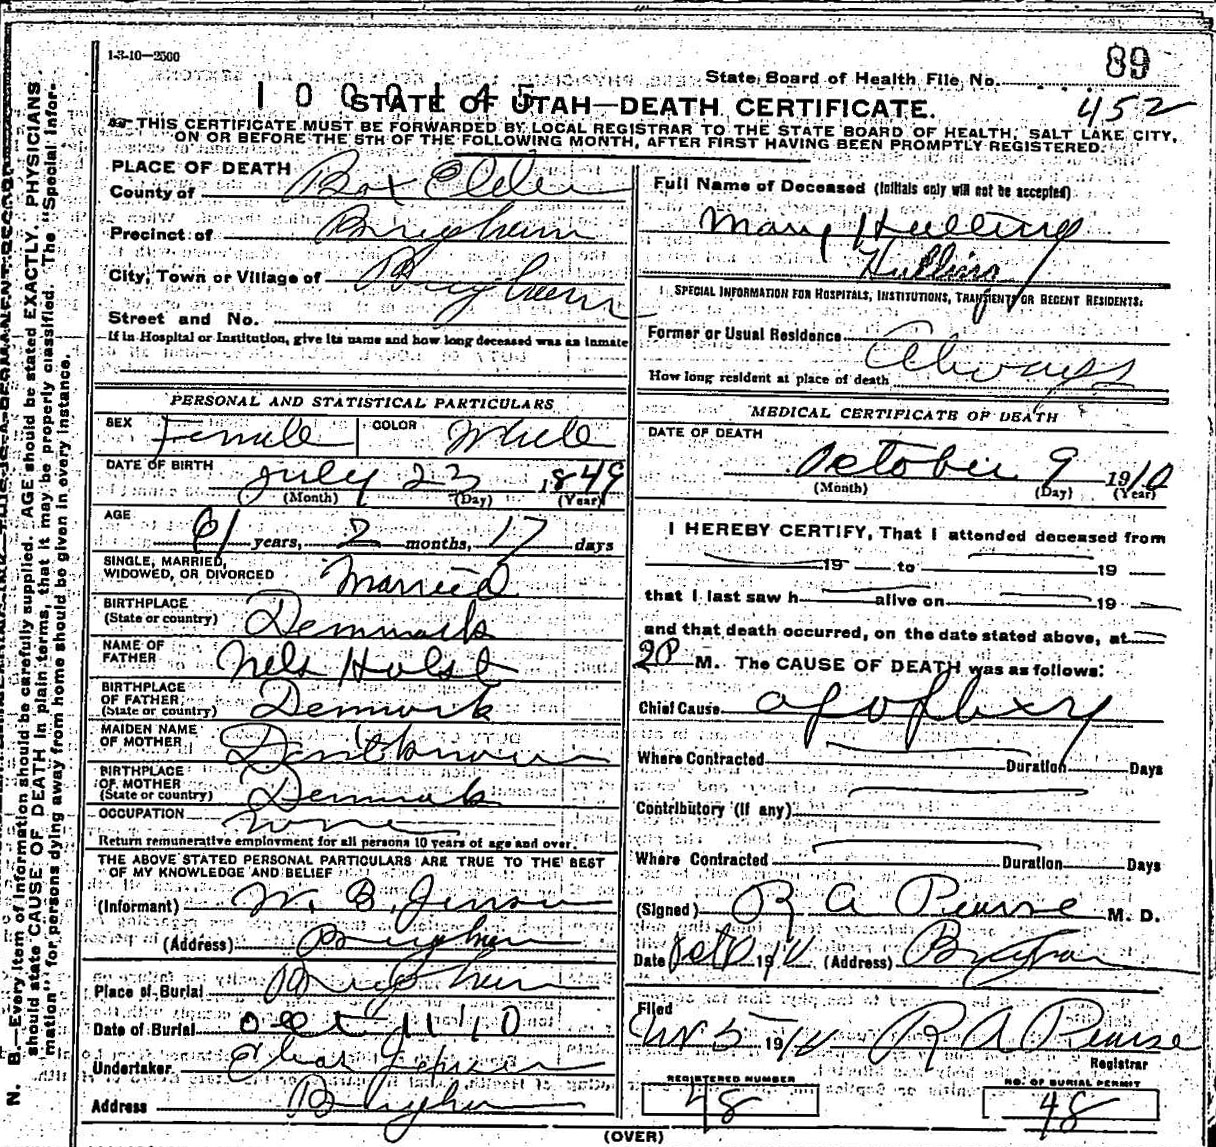 1-3-10—2500
State Board of Health File No. 89
1000145
STATE OF UTAH—DEATH CERTIFICATE. 452
THIS CERTIFICATE MUST BE FORWARDED BY LOCAL REGISTRAR TO THE STATE BOARD OF HEALTH, SALT LAKE CITY,
ON OR BEFORE THE 5TH OF THE FOLLOWING MONTH, AFTER FIRST HAVING BEEN PROMPTLY REGISTERED.
PLACE OF DEATH
County of Box Elder
Precinct of Brigham
City, Town or Village of Brigham
Street and No.
If in Hospital or Institution, give its name and how long deceased was an inmate
PERSONAL AND STATISTICAL PARTICULARS
SEX Female COLOR White
DATE OF BIRTH July 23 1849
(Month) (Day) (Year)
AGE 61 years, 2 months, 17 days
SINGLE, MARRIED,
WIDOWED, OR DIVORCED Married
BIRTHPLACE
(State or country) Denmark
NAME OF
FATHER Nels Holst
BIRTHPLACE
OF FATHER
(State or country) Denmark
MAIDEN NAME
OF MOTHER Dont know
BIRTHPLACE
OF MOTHER
(State or country) Denmark
OCCUPATION None
Return remunerative employment for all persons 10 years of age and over.
THE ABOVE STATED PERSONAL PARTICULARS ARE TRUE TO THE BEST
OF MY KNOWLEDGE AND BELIEF
(Informant) W. B. Jensen
(Address) Brigham
Place of Burial Brigham
Date of Burial Oct 11 10
Undertaker
Address Brigham
Full Name of Deceased (Initials only will not be accepted)
Mary Hulling
Hulling
SPECIAL INFORMATION FOR HOSPITALS, INSTITUTIONS, TRANSIENTS OR RECENT RESIDENTS:
Former or Usual Residence
How long resident at place of death Always
MEDICAL CERTIFICATE OF DEATH
DATE OF DEATH
October 9 1910
(Month) (Day) (Year)
I HEREBY CERTIFY, That I attended deceased from
19 to 19
that I last saw h alive on 19
and that death occurred, on the date stated above, at
2P M. The CAUSE OF DEATH was as follows:
Chief Cause apoplexy
Where Contracted Duration Days
Contributory (if any)
Where Contracted Duration Days
(Signed) R A Pearse M. D.
Date Oct 19 10 (Address) Brigham
Filed
Nov 5 1910 R A Pearse
Registrar
REGISTERED NUMBER
48
NO. OF BURIAL PERMIT
48
(OVER)
N. B.—Every item of information should be carefully supplied. AGE should be stated EXACTLY. PHYSICIANS
should state CAUSE OF DEATH in plain terms, that it may be properly classified. The "Special Infor-
mation" for persons dying away from home should be given in every instance.